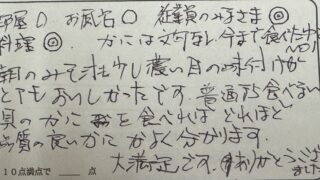 部屋 〇 お風呂 〇 従業員のみなさま ◎
料理 ◎ かには文句なし 今まで食べた中でNO1
朝のみそ汁少し濃い目の味付けが
とてもおいしかったです。普通あまり食べない
具のかにを食べれば どれほど
品質の良いかにかよく分かります。
大満足です。ありがとうございました
10点満点で 点